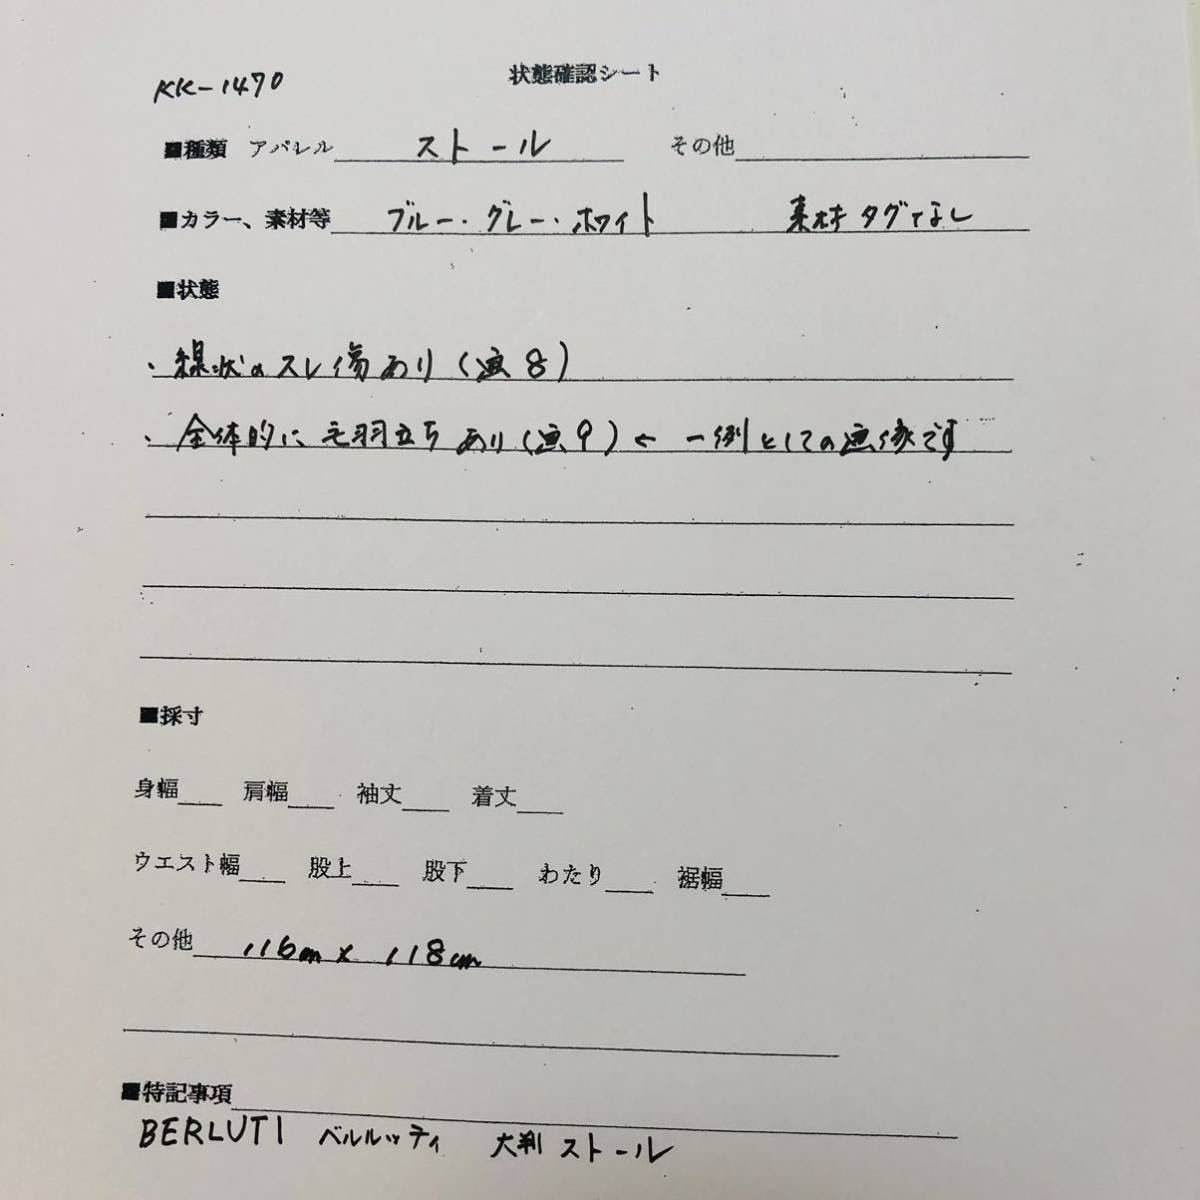 KK-1470
状態確認シート
■種類 アパレル ストール その他
■カラー、素材等 ブルー・グレー・ホワイト 素材タグなし
■状態
・線状のスレ傷あり(画8)
・全体的に毛羽立ちあり(画9)← 一例としての画像です
■採寸
身幅 肩幅 袖丈 着丈
ウエスト幅 股上 股下 わたり 裾幅
その他 116cm x 118cm
■特記事項
BERLUTI ベルルッティ 大判 ストール